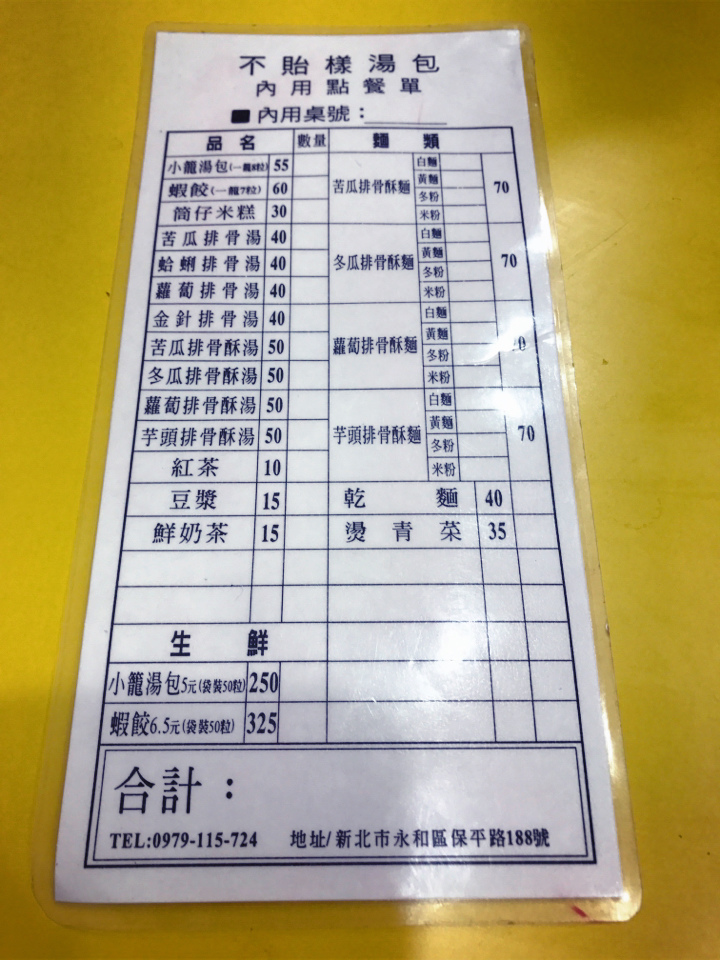 不貽樣湯包
內用點餐單
■內用桌號：
品名 數量 麵類
小籠湯包(一籠8粒) 55
蝦餃(一籠7粒) 60
筒仔米糕 30
苦瓜排骨湯 40
蛤蜊排骨湯 40
蘿蔔排骨湯 40
金針排骨湯 40
苦瓜排骨酥湯 50
冬瓜排骨酥湯 50
蘿蔔排骨酥湯 50
芋頭排骨酥湯 50
紅茶 10
豆漿 15
鮮奶茶 15
苦瓜排骨酥麵 70
白麵
黃麵
冬粉
米粉
冬瓜排骨酥麵 70
白麵
黃麵
冬粉
米粉
蘿蔔排骨酥麵
白麵
黃麵
冬粉
米粉
芋頭排骨酥麵 70
白麵
黃麵
冬粉
米粉
乾麵 40
燙青菜 35
生鮮
小籠湯包5元(袋裝50粒) 250
蝦餃6.5元(袋裝50粒) 325
合計：
TEL:0979-115-724 地址/新北市永和區保平路188號